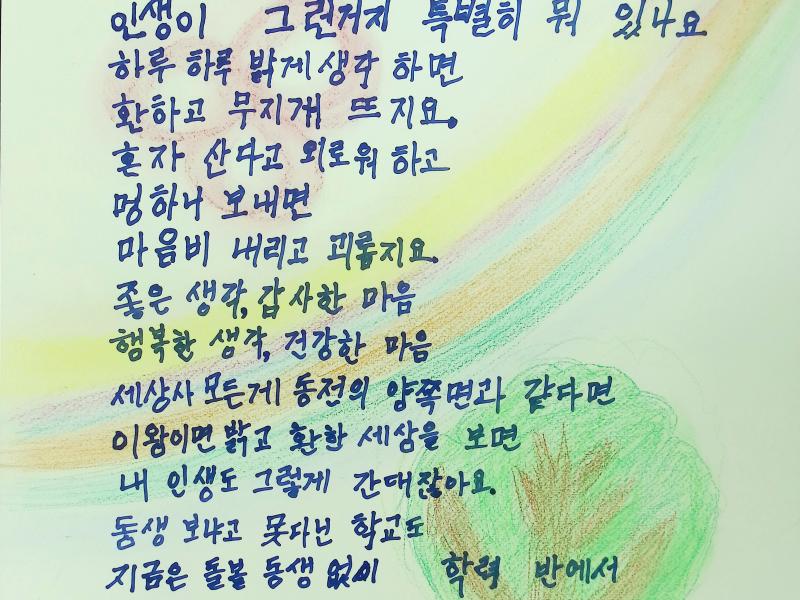 인생이 그런거지 특별히 뭐 있나요
하루 하루 밝게 생각 하면
환하고 무지개 뜨지요.
혼자 산다고 외로워 하고
멍하니 보내면
마음비 내리고 괴롭지요.
좋은 생각, 감사한 마음
행복한 생각, 건강한 마음
세상사 모든게 동전의 양쪽면과 같다면
이왕이면 밝고 환한 세상을 보면
내 인생도 그렇게 간대잖아요.
동생 보냐고 못다닌 학교도
지금은 돌볼 동생 없이 학력 반에서